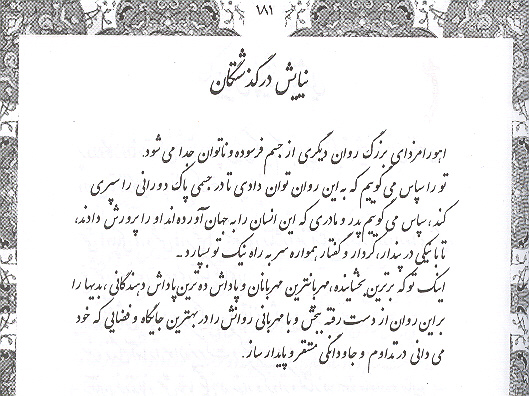 ۱۸۱
نیایش درگذشتگان
اهورامزدای بزرگ روان دیگری از جسم فرسوده و ناتوان جدا می شود.
تو را سپاس می گوییم که به این روان توان دادی تا در جسمی پاک دورانی را سپری
کند، سپاس می گوییم پدر و مادری که این انسان را به جهان آورده اند او را پرورش دادند،
تا با نیکی در پندار، کردار و گفتار همواره سر به راه نیک تو بسپارد.
اینک تو که برترین بخشاینده، مهربانترین مهربانان و پاداش ده ترین پاداش دهندگانی، بدیها را
بر این روان از دست رفته ببخش و با مهربانی روانش را در بهترین جایگاه و فضایی که خود
می دانی در تداوم و جاودانگی مستقر و پایدار ساز.